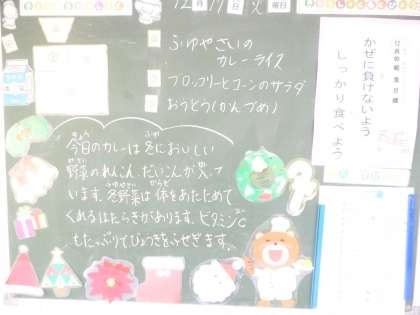 12月17日火曜日
ふゆやさいの
カレーライス
ブロッコリーとコーンのサラダ
おうとう(かんづめ)
今日のカレーは冬においしい
野菜のれんこん、だいこんが入って
います。冬野菜は体をあたためて
くれるはたらきがあります。ビタミンC
もたっぷりでびょうきをふせぎます。
かぜに負けないよう
しっかり食べよう